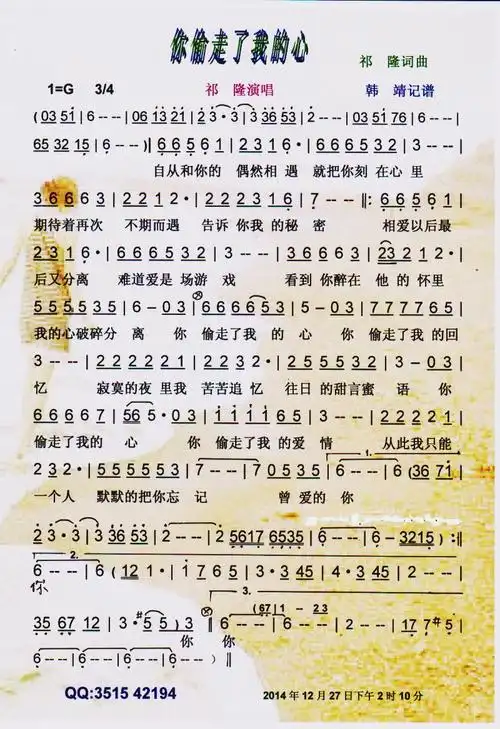 你偷走了我的心
祁 隆词曲
1=G 3/4 祁 隆演唱 韩 靖记谱
(0351|6---|0613 21|23·3|3 36 53|03 51 76|6---|
65 32 15|6---)|66561|2316·|6665 32|3---|
自从和你的 偶然相遇 就把你刻 在心 里
36663|2212·|2 2 2 3 1 6|7---‖:66561|
期待着再次 不期而遇 告诉你我 的秘 密 相爱以后最
2316·|666532|3---|36663|23 2 1 2·|
后又分离 难道爱是 场游 戏 看到你醉在 他 的 怀里
555535|6-03|666653|5-03|777765|
我的心破碎分 离 你 偷走了我 的 心 你 偷走了我 的回
3---|222221|2232·|222223|3-03|
忆 寂寞的夜 里我 苦苦追 忆 往日的甜言蜜 语 你
66667|565·03|111165|3-03|23221|
偷走了我的 心 你 偷走了我 的爱 情 从此我只能
232·|555553|7--7|70535|6---|6(36 71|
一个人 默默的把你忘 记 曾 爱的 你
1.
23·3|3 36 53|2---|2 5617 6535|6---|6-3215):‖
2.
6---|6(121·|1765|3·345|4·345|2---|
你
3.
35 67 12|3·#55)3‖6---|6---|2---|17 7#5|
(67|1- 23
你 你
6---|(6---|6---|6---)‖
QQ:3515 42194
2014年12月27日下午2时10分